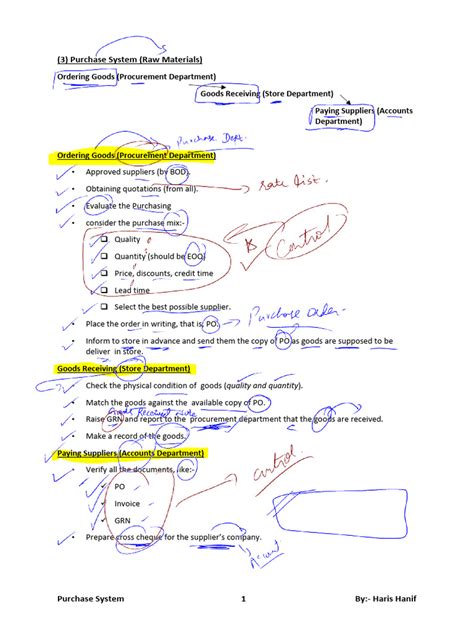 (3) Purchase System (Raw Materials)
Ordering Goods (Procurement Department)
Goods Receiving (Store Department)
Paying Suppliers (Accounts
Department)
Purchase Dept.
Ordering Goods (Procurement Department)
• Approved suppliers (by BOD).
• Obtaining quotations (from all). rate list.
• Evaluate the Purchasing
• consider the purchase mix:-
❑ Quality
❑ Quantity (should be EOQ) Control
❑ Price, discounts, credit time
❑ Lead time
❑ Select the best possible supplier.
• Place the order in writing, that is, PO. Purchase order.
• Inform to store in advance and send them the copy of PO as goods are supposed to be
deliver in store.
Goods Receiving (Store Department)
✓ Check the physical condition of goods (quality and quantity).
• Match the goods against the available copy of PO.
Goods Received note
• Raise GRN and report to the procurement department that the goods are received.
• Make a record of the goods.
Paying Suppliers (Accounts Department)
• Verify all the documents, like:- control
✓ PO
✓ Invoice
✓ GRN
• Prepare cross cheque for the supplier's company.
Purchase System 1 By:- Haris Hanif